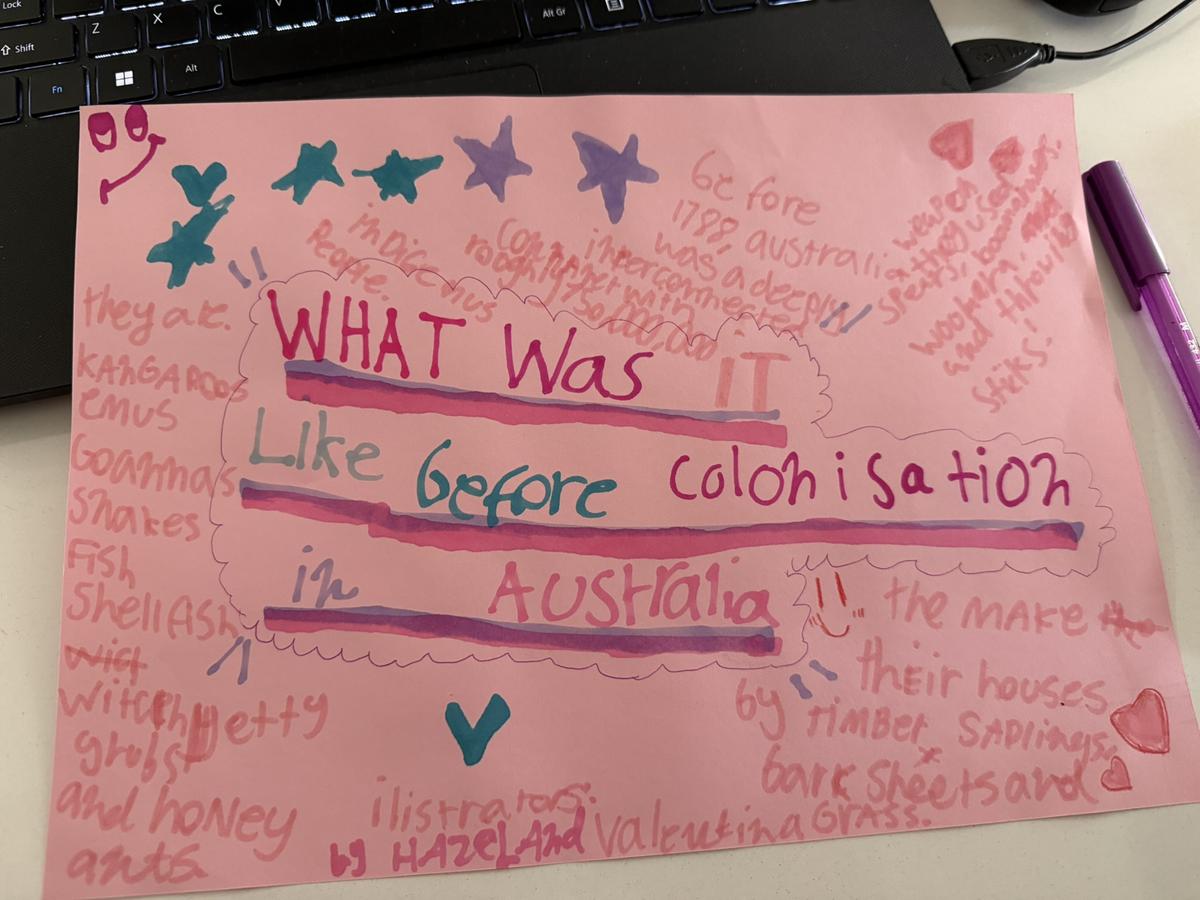 Lock
Z
X
C
V
Alt Gr
Shift
Fn
Alt
WHAT Was IT
Like before colonisation
in Australia
before
1788, australia
was a deeply
interconnected
roughly 750,000,000
inDicenius
People.
weapen
they used
spears, boomarangs,
woomera
and throwing
stiks!
they are.
KANGAROOS
emus
Goannas
snakes
Fish
Shellfish
wict
witchHetty
grubs
and honey
ants
the MAKE the
their houses
by TIMBER SAPlings,
bark sheets and
GRASS.
ilistrators:
by HAZEL ANd Valentina